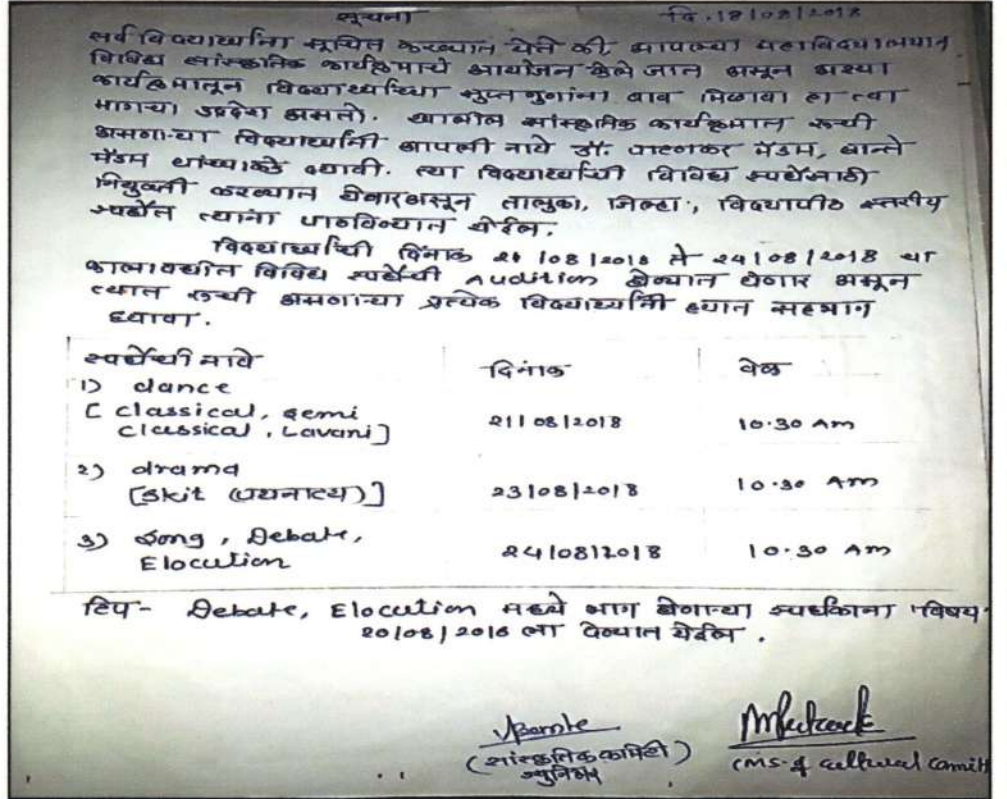 सूचना दि.18/08/2018
सर्व विद्यार्थ्यांना सूचित करण्यात येते की, आपल्या महाविद्यालयात
विविध सांस्कृतिक कार्यक्रमाचे आयोजन केले जात असून अश्या
कार्यक्रमातून विद्यार्थ्यांच्या सुप्त गुणांना वाव मिळावा हा त्या
मागचा उद्देश असतो. खालील सांस्कृतिक कार्यक्रमात रुची
असणाऱ्या विद्यार्थ्यांनी आपली नावे डॉ. पाटणकर मॅडम, बान्ते
मॅडम यांच्याकडे द्यावी. त्या विद्यार्थ्यांची विविध स्पर्धेसाठी
नियुक्ती करण्यात येणार असून तालुका, जिल्हा, विद्यापीठ स्तरीय
स्पर्धेत त्यांना पाठविण्यात येईल.
विद्यार्थ्यांची दिनांक 21/08/2018 ते 24/08/2018 या
कालावधीत विविध स्पर्धेची Audition घेण्यात येणार असून
त्यात रुची असणाऱ्या प्रत्येक विद्यार्थ्यांनी ह्यात सहभाग
घ्यावा.
स्पर्धेची नावे दिनांक वेळ
1) dance
[classical, semi
classical, Lavani] 21/08/2018 10.30 Am
2) drama
[Skit (पथनाट्य)] 23/08/2018 10.30 Am
3) Song, Debate,
Elocution 24/08/2018 10.30 Am
टिप- Debate, Elocution मध्ये भाग घेणाऱ्या स्पर्धकांना विषय
20/08/2018 ला देण्यात येईल.
(सांस्कृतिक कमिटी)
ज्युनिअर